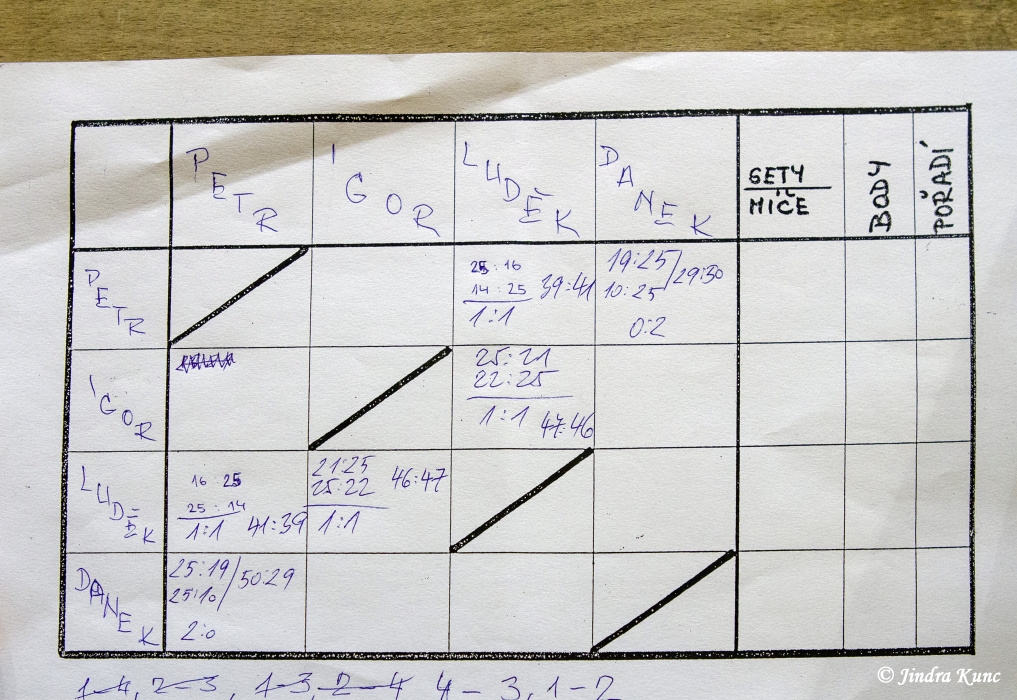 PETR IGOR LUDĚK DANEK SETY MÍČE BODY POŘADÍ
PETR
25:16
14:25 39:41
1:1
19:25
10:25 / 29:30
0:2
IGOR
25:21
22:25
1:1 47:46
LUDĚK
16 25
25:14
1:1 41:39
21:25
25:22 46:47
1:1
DANEK
25:19
25:10 / 50:29
2:0
1-4, 2-3, 1-3, 2-4 4-3, 1-2
© Jindra Kunc